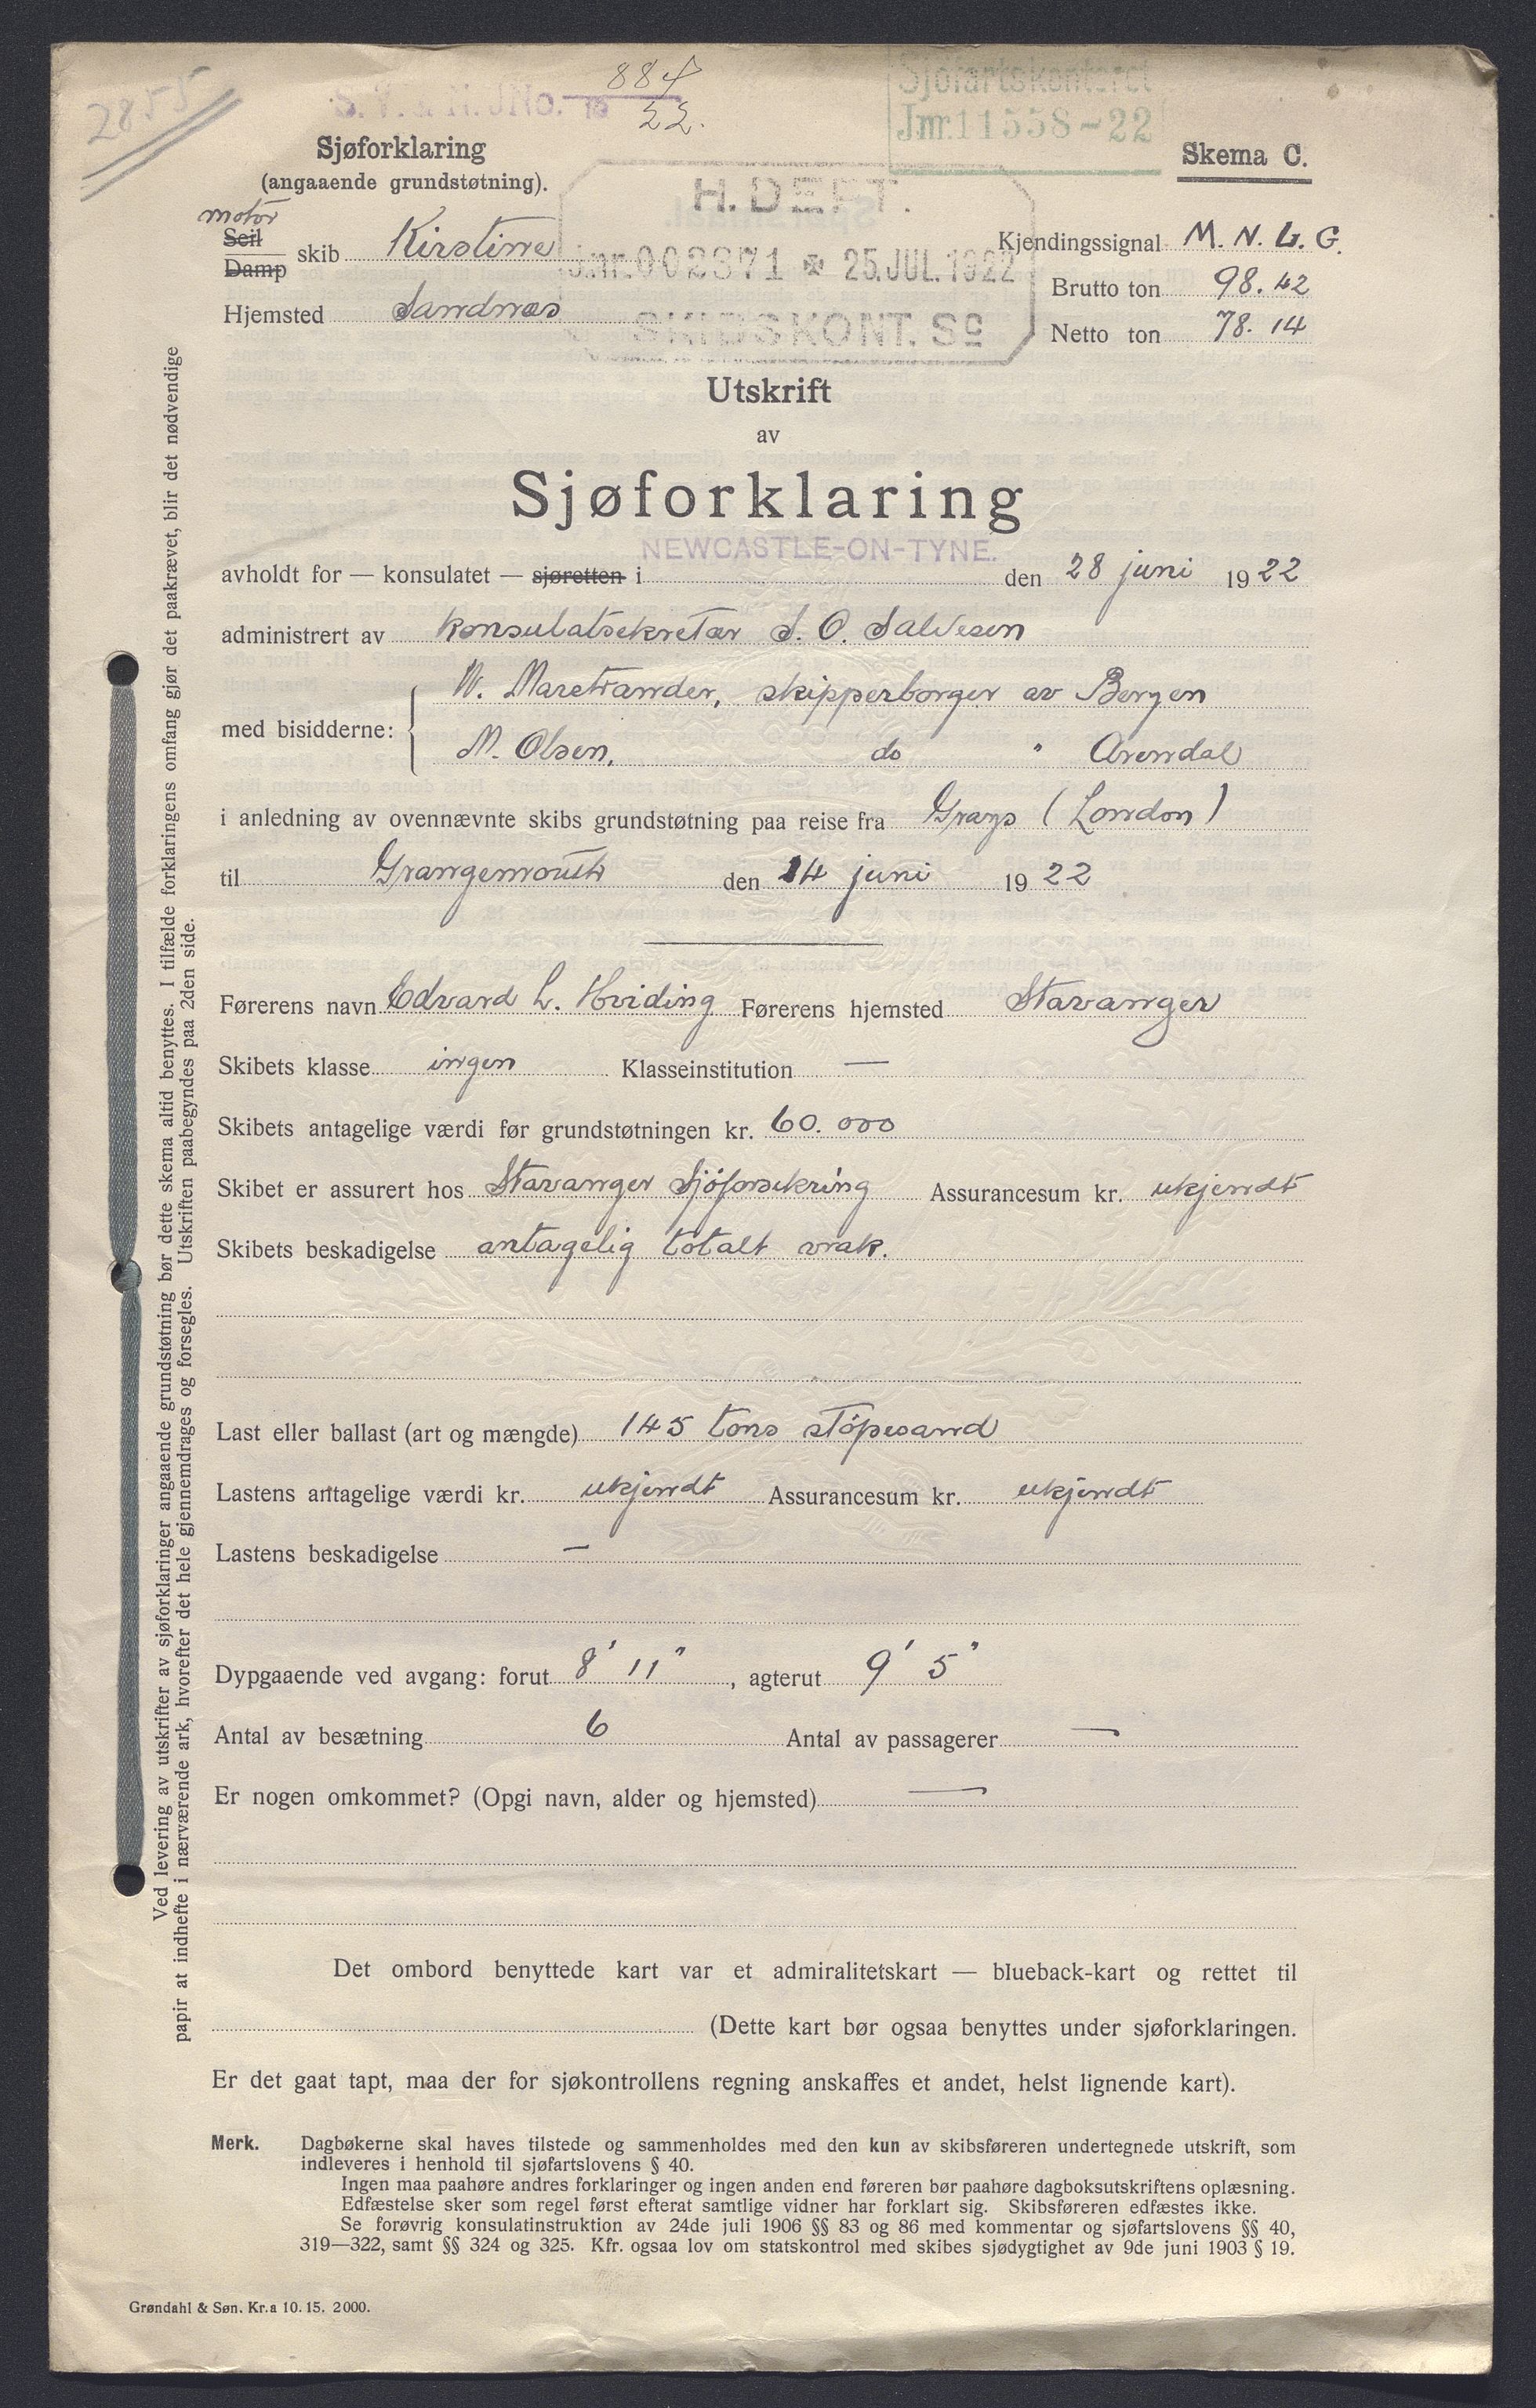 2855
884
22.
Sjøfartskontoret
Jnr. 11558-22
Sjøforklaring
(angaaende grundstøtning).
Skema C.
H. DEPT.
J.nr. 002371 * 25. JUL. 1922
SKIBSKONT. Sc
motor
Seil
Damp
skib Kirstine
Kjendingssignal M. N. L. G.
Brutto ton 98.42
Hjemsted Sandnæs
Netto ton 78.14
Utskrift
av
Sjøforklaring
NEWCASTLE-ON-TYNE.
avholdt for — konsulatet — sjøretten i den 28 juni 1922
administrert av konsulatsekretær S. O. Salvesen
med bisidderne: W. Marstrander, skipperborger av Bergen
M. Olsen, do " Arendal
i anledning av ovennævnte skibs grundstøtning paa reise fra Grays (London)
til Grangemouth den 14 juni 1922
Førerens navn Edvard L. Hviding Førerens hjemsted Stavanger
Skibets klasse ingen Klasseinstitution —
Skibets antagelige værdi før grundstøtningen kr. 60.000
Skibet er assurert hos Stavanger Sjöforsikring Assurancesum kr. ukjendt
Skibets beskadigelse antagelig totalt vrak.
Last eller ballast (art og mængde) 145 tons stöpesand
Lastens antagelige værdi kr. ukjendt Assurancesum kr. ukjendt
Lastens beskadigelse —
Dypgaaende ved avgang: forut 8' 11", agterut 9' 5"
Antal av besætning 6 Antal av passagerer —
Er nogen omkommet? (Opgi navn, alder og hjemsted) —
Det ombord benyttede kart var et admiralitetskart — blueback-kart og rettet til
(Dette kart bør ogsaa benyttes under sjøforklaringen.
Er det gaat tapt, maa der for sjøkontrollens regning anskaffes et andet, helst lignende kart).
Merk. Dagbøkerne skal haves tilstede og sammenholdes med den kun av skibsføreren undertegnede utskrift, som
indleveres i henhold til sjøfartslovens § 40.
Ingen maa paahøre andres forklaringer og ingen anden end føreren bør paahøre dagboksutskriftens oplæsning.
Edfæstelse sker som regel først efterat samtlige vidner har forklart sig. Skibsføreren edfæstes ikke.
Se forøvrig konsulatinstruktion av 24de juli 1906 §§ 83 og 86 med kommentar og sjøfartslovens §§ 40,
319—322, samt §§ 324 og 325. Kfr. ogsaa lov om statskontrol med skibes sjødygtighet av 9de juni 1903 § 19.
Grøndahl & Søn. Kr.a 10. 15. 2000.
Ved levering av utskrifter av sjøforklaringer angaaende grundstøtning bør dette skema altid benyttes. I tilfælde forklaringens omfang gjør det paakrævet, blir det nødvendige
papir at indhefte i nærværende ark, hvorefter det hele gjennemdrages og forsegles. Utskriften paabegyndes paa 2den side.